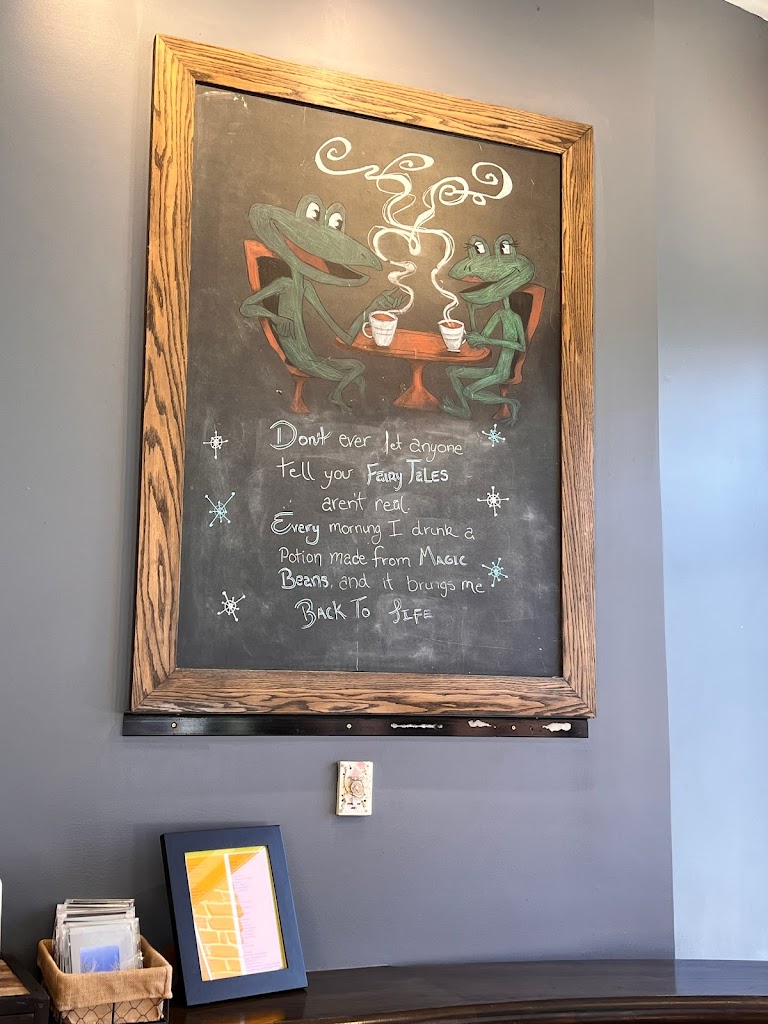 Don't ever let anyone
tell you FAIRY TALES
aren't real.
Every morning I drink a
Potion made from MAGIC
Beans, and it brings me
BACK TO LIFE